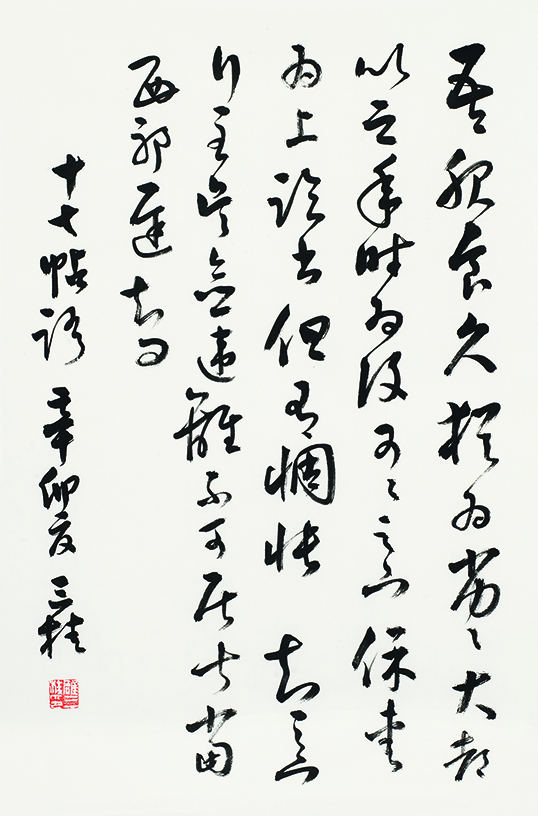 吾服食久猶為劣々大都
比之年時為復可々足下保愛
為上臨書但有惆悵 知足下
行至吳念違離不可居叔當
西耶遲知問
十七帖語 辛卯夏 三桂